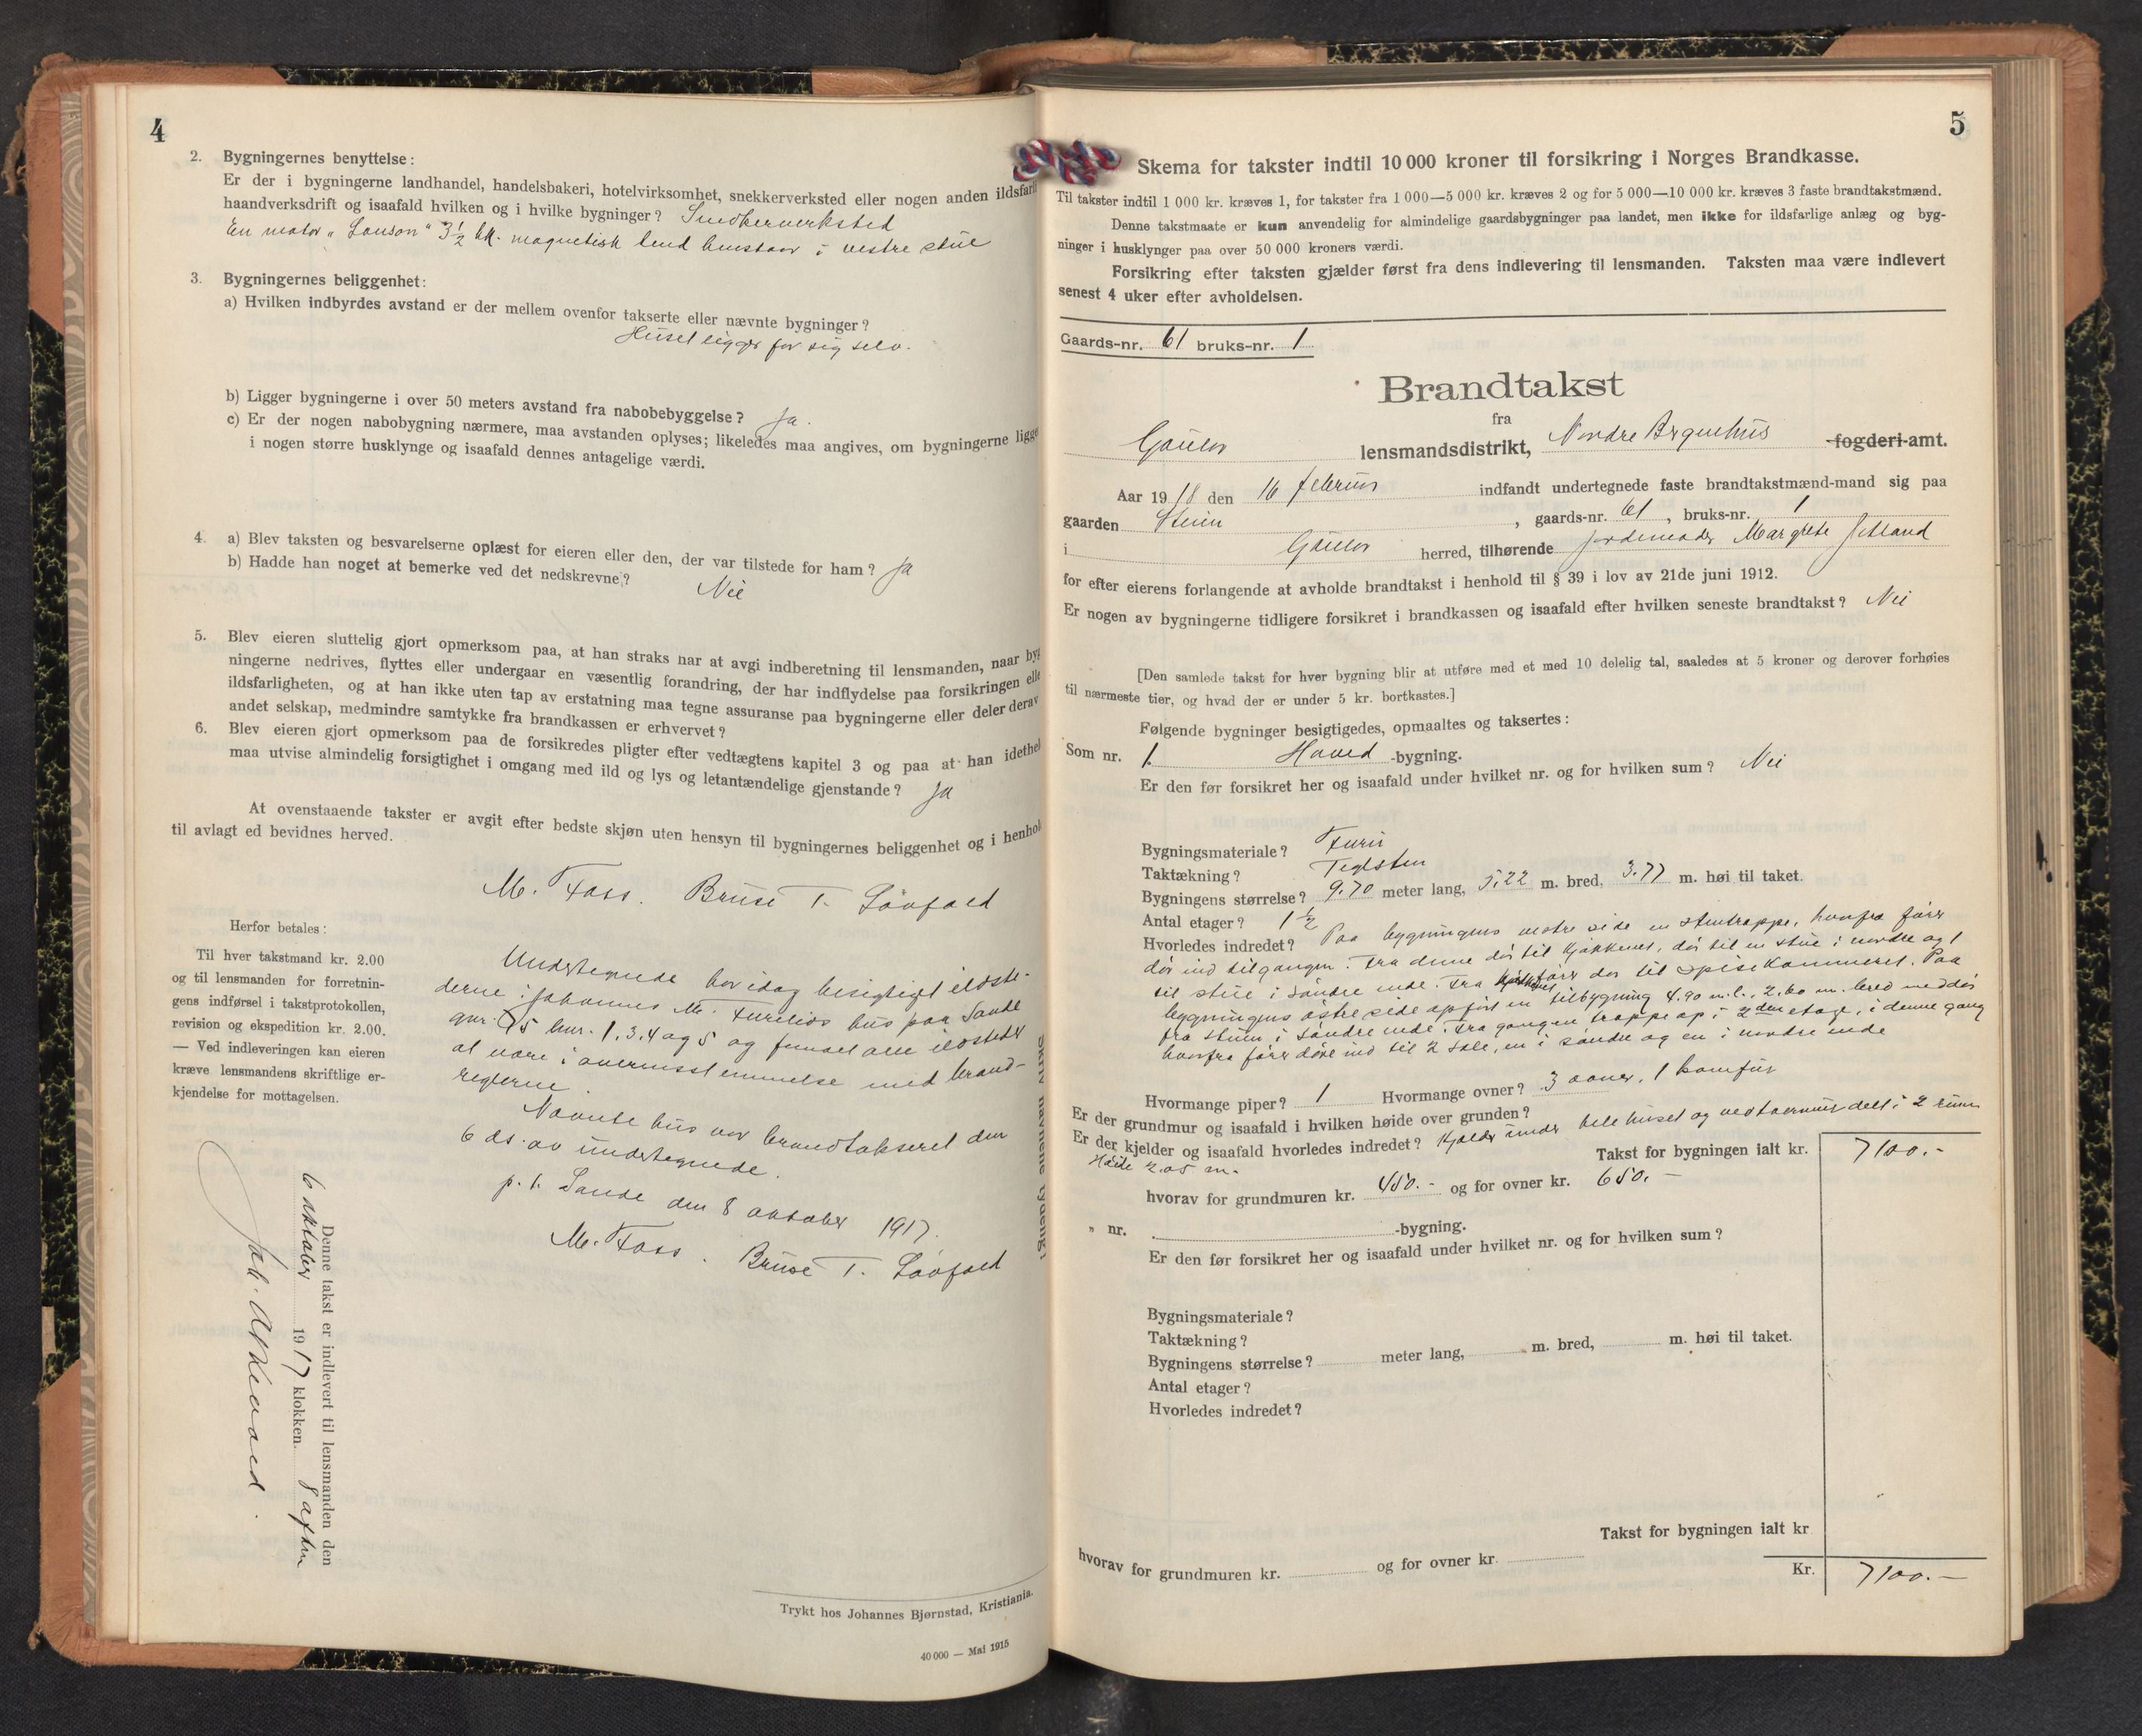 4
2. Bygningernes benyttelse:
Er der i bygningerne landhandel, handelsbakeri, hotelvirksomhet, snekkerverksted eller nogen anden ildsfarl
haandverksdrift og isaafald hvilken og i hvilke bygninger? Snedkerverksted
En motor „ Lauson " 3½ hk. magnetisk tend henstaar i vestre stue
3. Bygningernes beliggenhet:
a) Hvilken indbyrdes avstand er der mellem ovenfor takserte eller nævnte bygninger?
Huset ligger for sig selv.
b) Ligger bygningerne i over 50 meters avstand fra nabobebyggelse? Ja.
c) Er der nogen nabobygning nærmere, maa avstanden oplyses; likeledes maa angives, om bygningerne ligge
i nogen større husklynge og isaafald dennes antagelige værdi.
4. a) Blev taksten og besvarelserne oplæst for eieren eller den, der var tilstede for ham? Ja
b) Hadde han noget at bemerke ved det nedskrevne? Nei
5. Blev eieren sluttelig gjort opmerksom paa, at han straks nar at avgi indberetning til lensmanden, naar byg
ningerne nedrives, flyttes eller undergaar en væsentlig forandring, der har indflydelse paa forsikringen elle
ildsfarligheten, og at han ikke uten tap av erstatning maa tegne assuranse paa bygningerne eller deler derav
andet selskap, medmindre samtykke fra brandkassen er erhvervet?
6. Blev eieren gjort opmerksom paa de forsikredes pligter efter vedtægtens kapitel 3 og paa at han idethel
maa utvise almindelig forsigtighet i omgang med ild og lys og letantændelige gjenstande? Ja
At ovenstaaende takster er avgit efter bedste skjøn uten hensyn til bygningernes beliggenhet og i henhol
til avlagt ed bevidnes herved.
M. Foss. Bruse T. Løvfald
Herfor betales:
Til hver takstmand kr. 2.00
og til lensmanden for forretnin-
gens indførsel i takstprotokollen,
revision og ekspedition kr. 2.00.
— Ved indleveringen kan eieren
kræve lensmandens skriftlige er-
kjendelse for mottagelsen.
Undertegnede har idag besigtiget ildste-
derne i Johannes M. Furelids hus paa Sande
gnr. 75 bnr. 1, 3, 4 og 5 og fundet alle ildsteder
at være i overensstemmelse med brand-
reglerne.
Nævnte hus var brandtakseret den
6 ds. av undertegnede.
p. t. Sande den 8 oktober 1917.
M. Foss. Bruse T. Løvfald
Skriv navnene tydelig!
Denne takst er indlevert til lensmanden den
6 oktober 1917 klokken 8 aften
Trykt hos Johannes Bjørnstad, Kristiania.
40 000 — Mai 1915
5
Skema for takster indtil 10 000 kroner til forsikring i Norges Brandkasse.
Til takster indtil 1 000 kr. kræves 1, for takster fra 1 000—5 000 kr. kræves 2 og for 5 000—10 000 kr. kræves 3 faste brandtakstmænd.
Denne takstmaate er kun anvendelig for almindelige gaardsbygninger paa landet, men ikke for ildsfarlige anlæg og byg-
ninger i husklynger paa over 50 000 kroners værdi.
Forsikring efter taksten gjælder først fra dens indlevering til lensmanden. Taksten maa være indlevert
senest 4 uker efter avholdelsen.
Gaards-nr. 61 bruks-nr. 1
Brandtakst
fra
Gauler lensmandsdistrikt, Nordre Bergenhus fogderi-amt.
Aar 1918 den 16 februar indfandt undertegnede faste brandtakstmænd-mand sig paa
gaarden Steien, gaards-nr. 61, bruks-nr. 1
i Gauler herred, tilhørende jordemoder Margrete Jetland
for efter eierens forlangende at avholde brandtakst i henhold til § 39 i lov av 21de juni 1912.
Er nogen av bygningerne tidligere forsikret i brandkassen og isaafald efter hvilken seneste brandtakst? Nei
[Den samlede takst for hver bygning blir at utføre med et med 10 delelig tal, saaledes at 5 kroner og derover forhøies
til nærmeste tier, og hvad der er under 5 kr. bortkastes.]
Følgende bygninger besigtigedes, opmaaltes og taksertes:
Som nr. 1. Hoved -bygning.
Er den før forsikret her og isaafald under hvilket nr. og for hvilken sum? Nei
Bygningsmateriale? Furu
Taktækning? Teglsten
Bygningens størrelse? 9.70 meter lang, 5.22 m. bred, 3.77 m. høi til taket.
Antal etager? 1½
Hvorledes indredet? Paa bygningens vestre side en stentrappe, hvorfra fører
dør ind til gangen. Fra denne dør til kjøkkenet, dør til en stue i nordre og 1
til stue i søndre ende. Fra kjøkkenet fører dør til spisekammeret. Paa
bygningens østre side opført en tilbygning 4.90 m. l., 2.60 m. bred med dør
fra stuen i søndre ende. Fra gangen trappe op i 2den etage, i denne gang
hvorfra fører døre ind til 2 sale, en i søndre og en i nordre ende
Hvormange piper? 1 Hvormange ovner? 3 ovner, 1 komfur
Er der grundmur og isaafald i hvilken høide over grunden?
Er der kjelder og isaafald hvorledes indredet? Kjelder under hele huset og ved tvermur delt i 2 rum
Høide 2.05 m.
Takst for bygningen ialt kr. 7100.-
hvorav for grundmuren kr. 450.- og for ovner kr. 650.-
" nr. -bygning.
Er den før forsikret her og isaafald under hvilket nr. og for hvilken sum?
Bygningsmateriale?
Taktækning?
Bygningens størrelse? meter lang, m. bred, m. høi til taket.
Antal etager?
Hvorledes indredet?
Takst for bygningen ialt kr
hvorav for grundmuren kr. og for ovner kr.
Kr. 7100.-